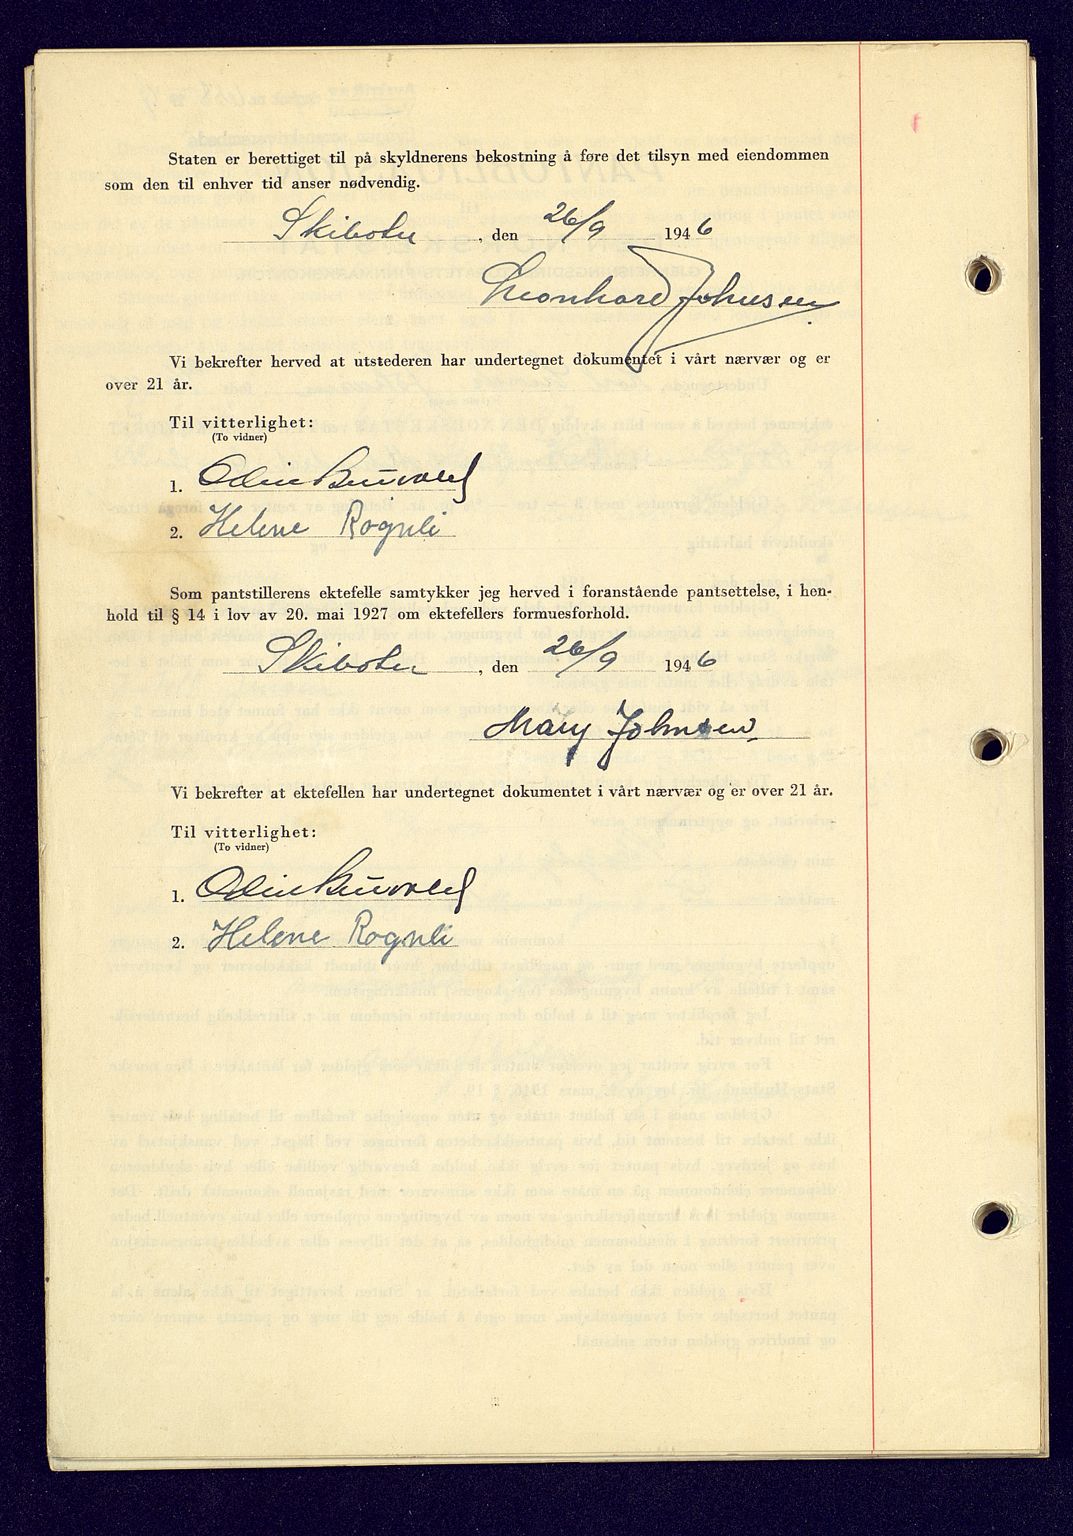 Staten er berettiget til på skyldnerens bekostning å føre det tilsyn med eiendommen
som den til enhver tid anser nødvendig.
Skibotn, den 26/9 1946
Leonhard Johnsen
Vi bekrefter herved at utstederen har undertegnet dokumentet i vårt nærvær og er
over 21 år.
Til vitterlighet:
(To vidner)
1. Odin
2. Helene Rognli
Som pantstillerens ektefelle samtykker jeg herved i foranstående pantsettelse, i hen-
hold til § 14 i lov av 20. mai 1927 om ektefellers formuesforhold.
Skibotn, den 26/9 1946
Mary Johnsen
Vi bekrefter at ektefellen har undertegnet dokumentet i vårt nærvær og er over 21 år.
Til vitterlighet:
(To vidner)
1. Odin
2. Helene Rognli